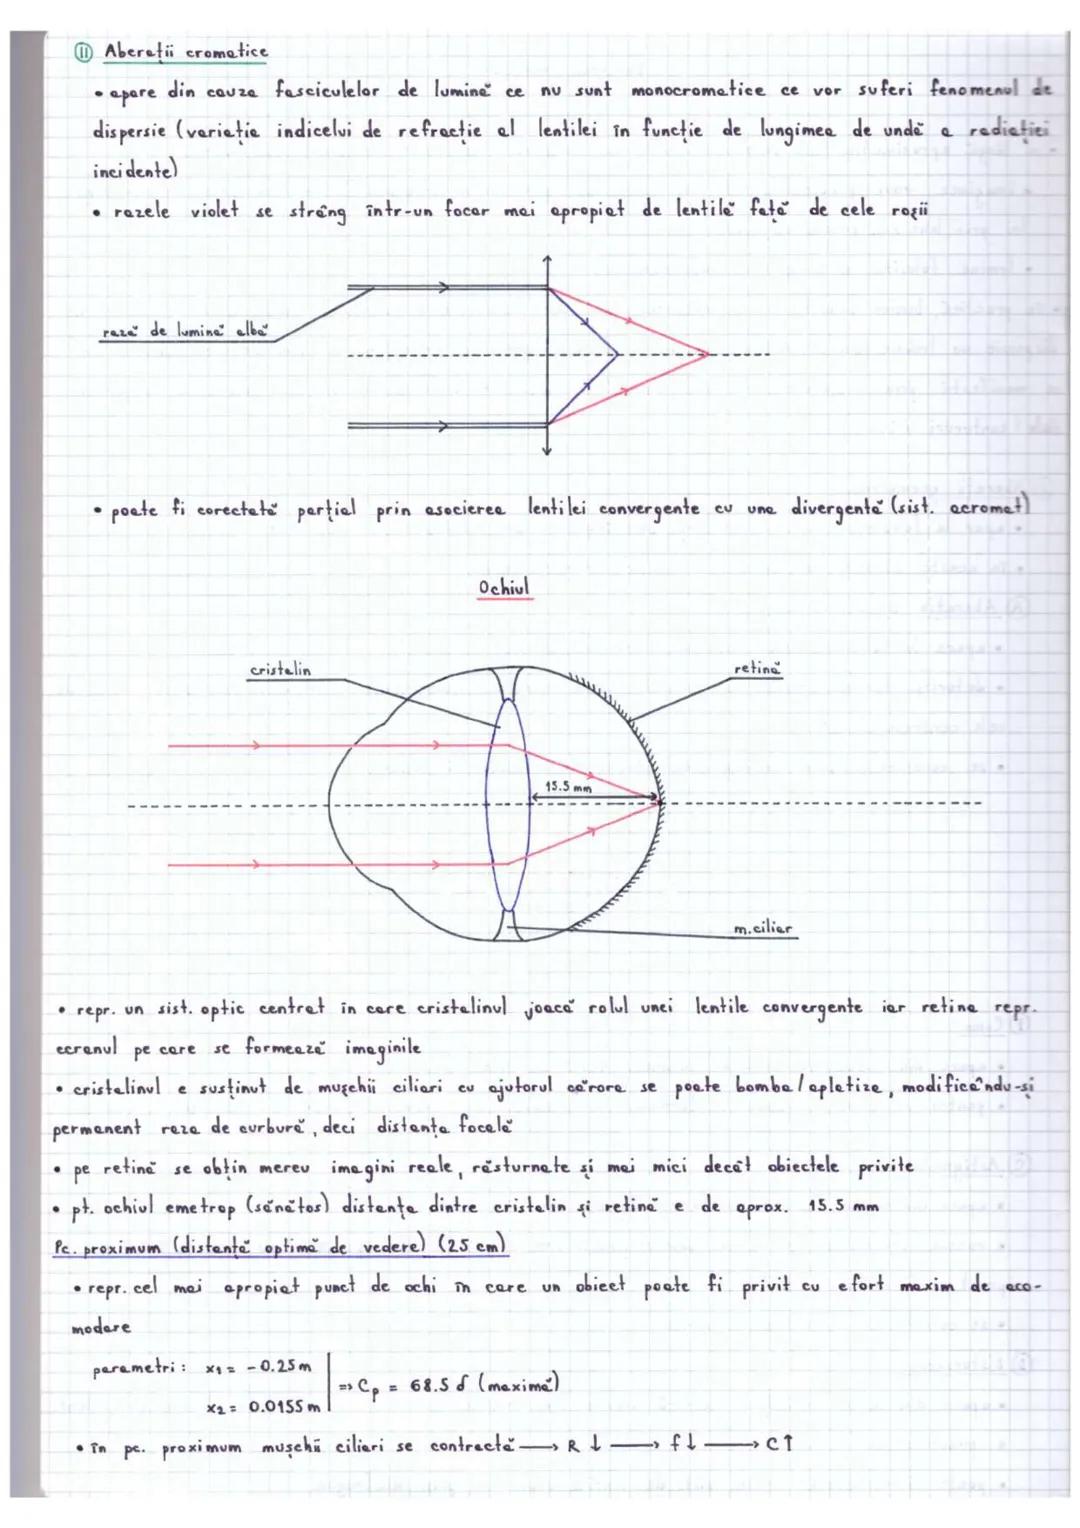 11 Aberații cromatice
• apare din cauza fasciculelor de lumină ce nu sunt monocromatice ce vor suferi fenomenul de
dispersie (variația indicelui de refracție al lentilei în funcție de lungimea de undă a radiației
incidente)
• razele violet se strâng într-un focar mai apropiat de lentilă față de cele roșii
rază de lumină albă
• poate fi corectată parțial prin asocierea lentilei convergente cu una divergentă (sist. acromat)
Ochiul
cristalin
retină
15.5 mm
m.ciliar
• repr. un sist. optic centrat în care cristalinul joacă rolul unei lentile convergente iar retina repr.
ecranul pe care se formează imaginile
• cristalinul e susținut de mușchii ciliari cu ajutorul cărora se poate bomba/aplatiza, modificându-și
permanent raza de curbură, deci distanța focală
• pe retină se obțin mereu imagini reale, răsturnate și mai mici decât obiectele privite
• pt. ochiul emetrop (sănătos) distanța dintre cristalin și retină e de aprox. 15.5 mm
Pc. proximum (distanță optimă de vedere) (25 cm)
• repr. cel mai apropiat punct de ochi în care un obiect poate fi privit cu efort maxim de aco-
modare
parametri: x₁ = -0.25 m
x₂ = 0.0155 m
=> Cₚ = 68.5 δ (maximă)
• în pc. proximum mușchii ciliari se contractă → R ↓ → f ↓ → C ↑